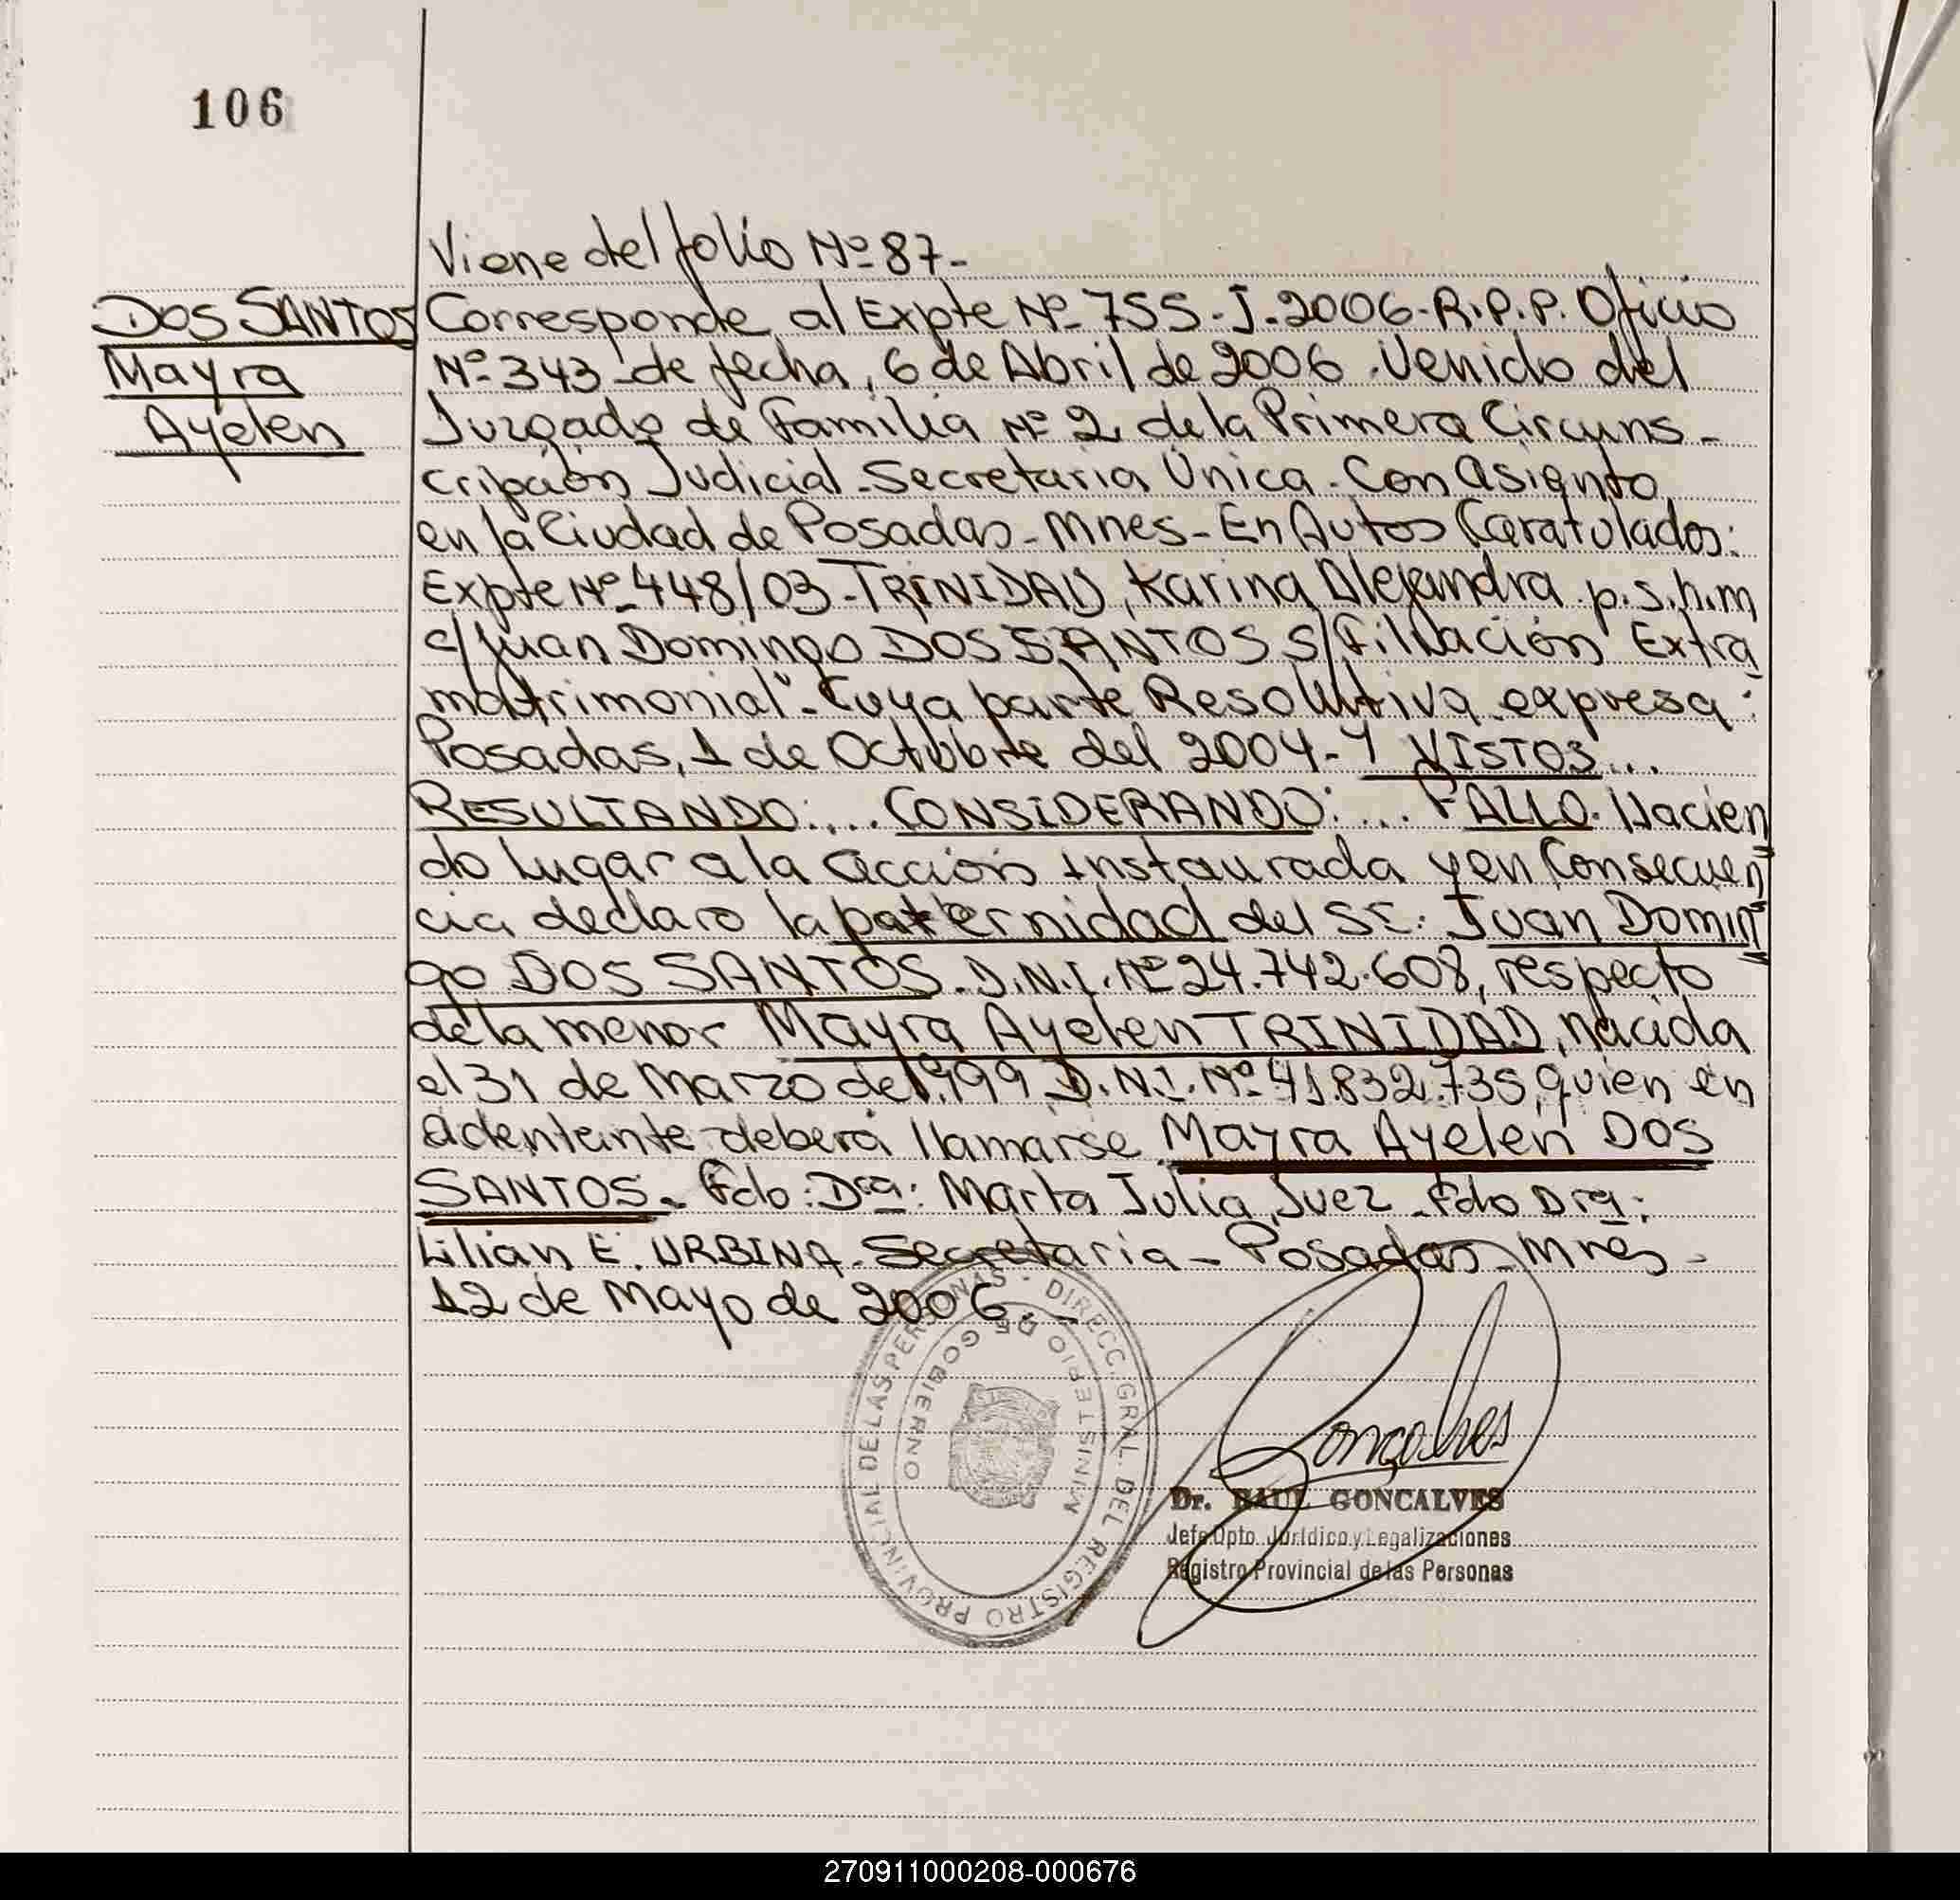 106
Viene del folio Nº 87-
DOS SANTOS
Mayra
Ayelen
Corresponde al Expte Nº 755-J-2006-R.P.P. Oficio
Nº 343 de fecha, 6 de Abril de 2006. Venido del
Juzgado de Familia Nº 2 de la Primera Circuns-
cripción Judicial-Secretaria Única-Con asiento
en la Ciudad de Posadas-Mnes-En Autos Caratulados:
Expte Nº 448/03-TRINIDAD, Karina Alejandra p.s.h.m
c/Juan Domingo DOS SANTOS S/Filiación Extra
matrimonial"-Cuya parte Resolutiva expresa:
Posadas, 1 de Octubre del 2004-Y VISTOS...
RESULTANDO:... CONSIDERANDO:... FALLO. Hacien
do Lugar a la acción instaurada y en Consecuen
cia declaro la paternidad del Sr. Juan Domin
go DOS SANTOS-D.N.I. Nº 24.742.608, respecto
de la menor Mayra Ayelen TRINIDAD, nacida
el 31 de Marzo de 1.999 D.N.I. Nº 41.832.735, quien en
adenlante deberá llamarse Mayra Ayelen DOS
SANTOS. Fdo: Dra: Marta Julia, Juez-Fdo Dra:
Lilian E. URBINA-Secretaria-Posadas-Mnes-
12 de Mayo de 2006.-
DIRECC. GRAL. DEL REGISTRO PROVINCIAL DE LAS PERSONAS -
MINISTERIO DE GOBIERNO
Goncalves
Dr. RAUL GONCALVES
Jefe Dpto. Jurídico y Legalizaciones
Registro Provincial de las Personas
270911000208-000676